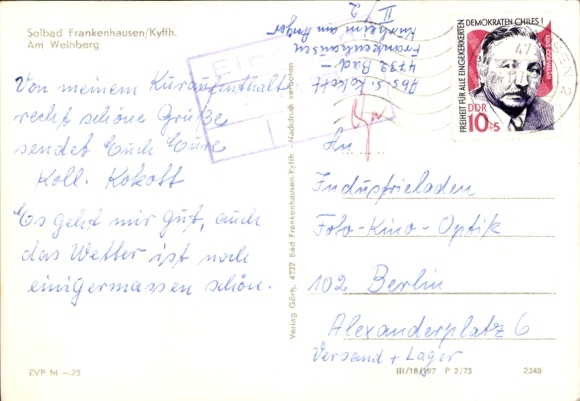 Solbad Frankenhausen/Kyffh.
Am Weinberg
Von meinem Kuraufenthalt
recht schöne Grüße
sendet Euch Eure
Koll. Kokott
Es geht mir gut, auch
das Wetter ist noch
einigermassen schön.
EVP M –.25
Verlag Görtz, 4732 Bad Frankenhausen/Kyffh. Nachdruck verboten
Abs. S. Kokott
4732 Bad –
Frankenhausen
Kurheim am Anger
II/2
EIN
FREIHEIT FÜR ALLE EINGEKERKERTEN
DEMOKRATEN CHILES!
LUIS CORVALAN
DDR
10+5
47
SEN 2
An
Industrieladen
Foto-Kino-Optik
102 Berlin
Alexanderplatz 6
Versand + Lager
III/18/197 P 2/73 2348